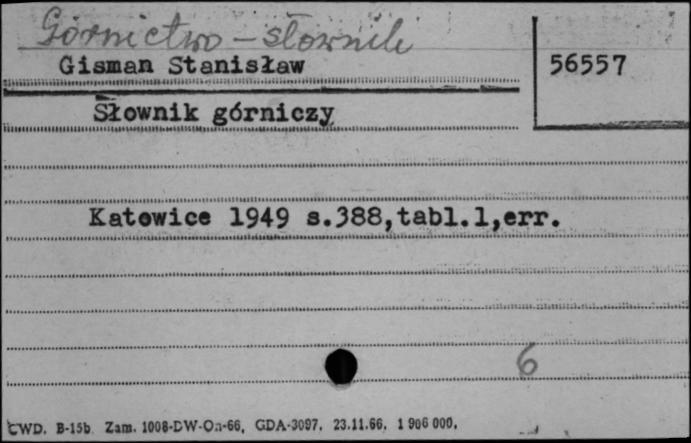 Górnictwo - słownik
Gisman Stanisław
56557
Słownik górniczy
Katowice 1949 s.388,tabl.1,err.
6
CWD. B-15b. Zam. 1008-DW-Oa-66, GDA-3097, 23.11.66. 1 906 000.